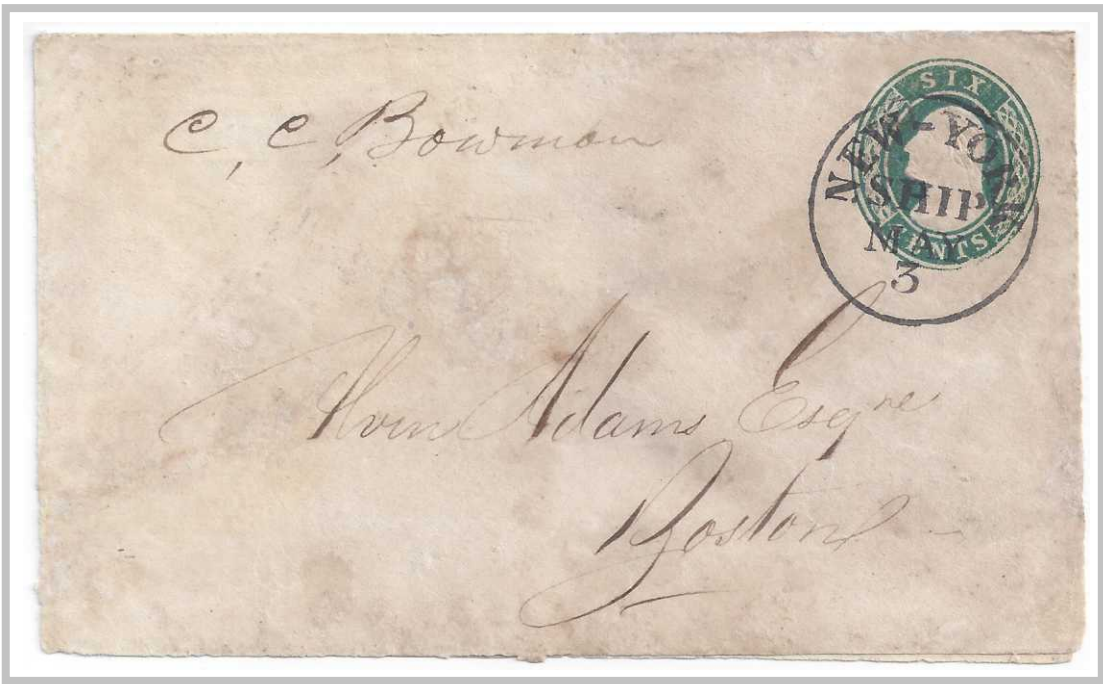 C, C, Bowman
SIX
CENTS
NEW-YORK
SHIP
MAY
3
Alvin Adams Esqre
Boston